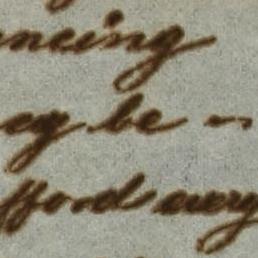 ncing
ey be –
fford every